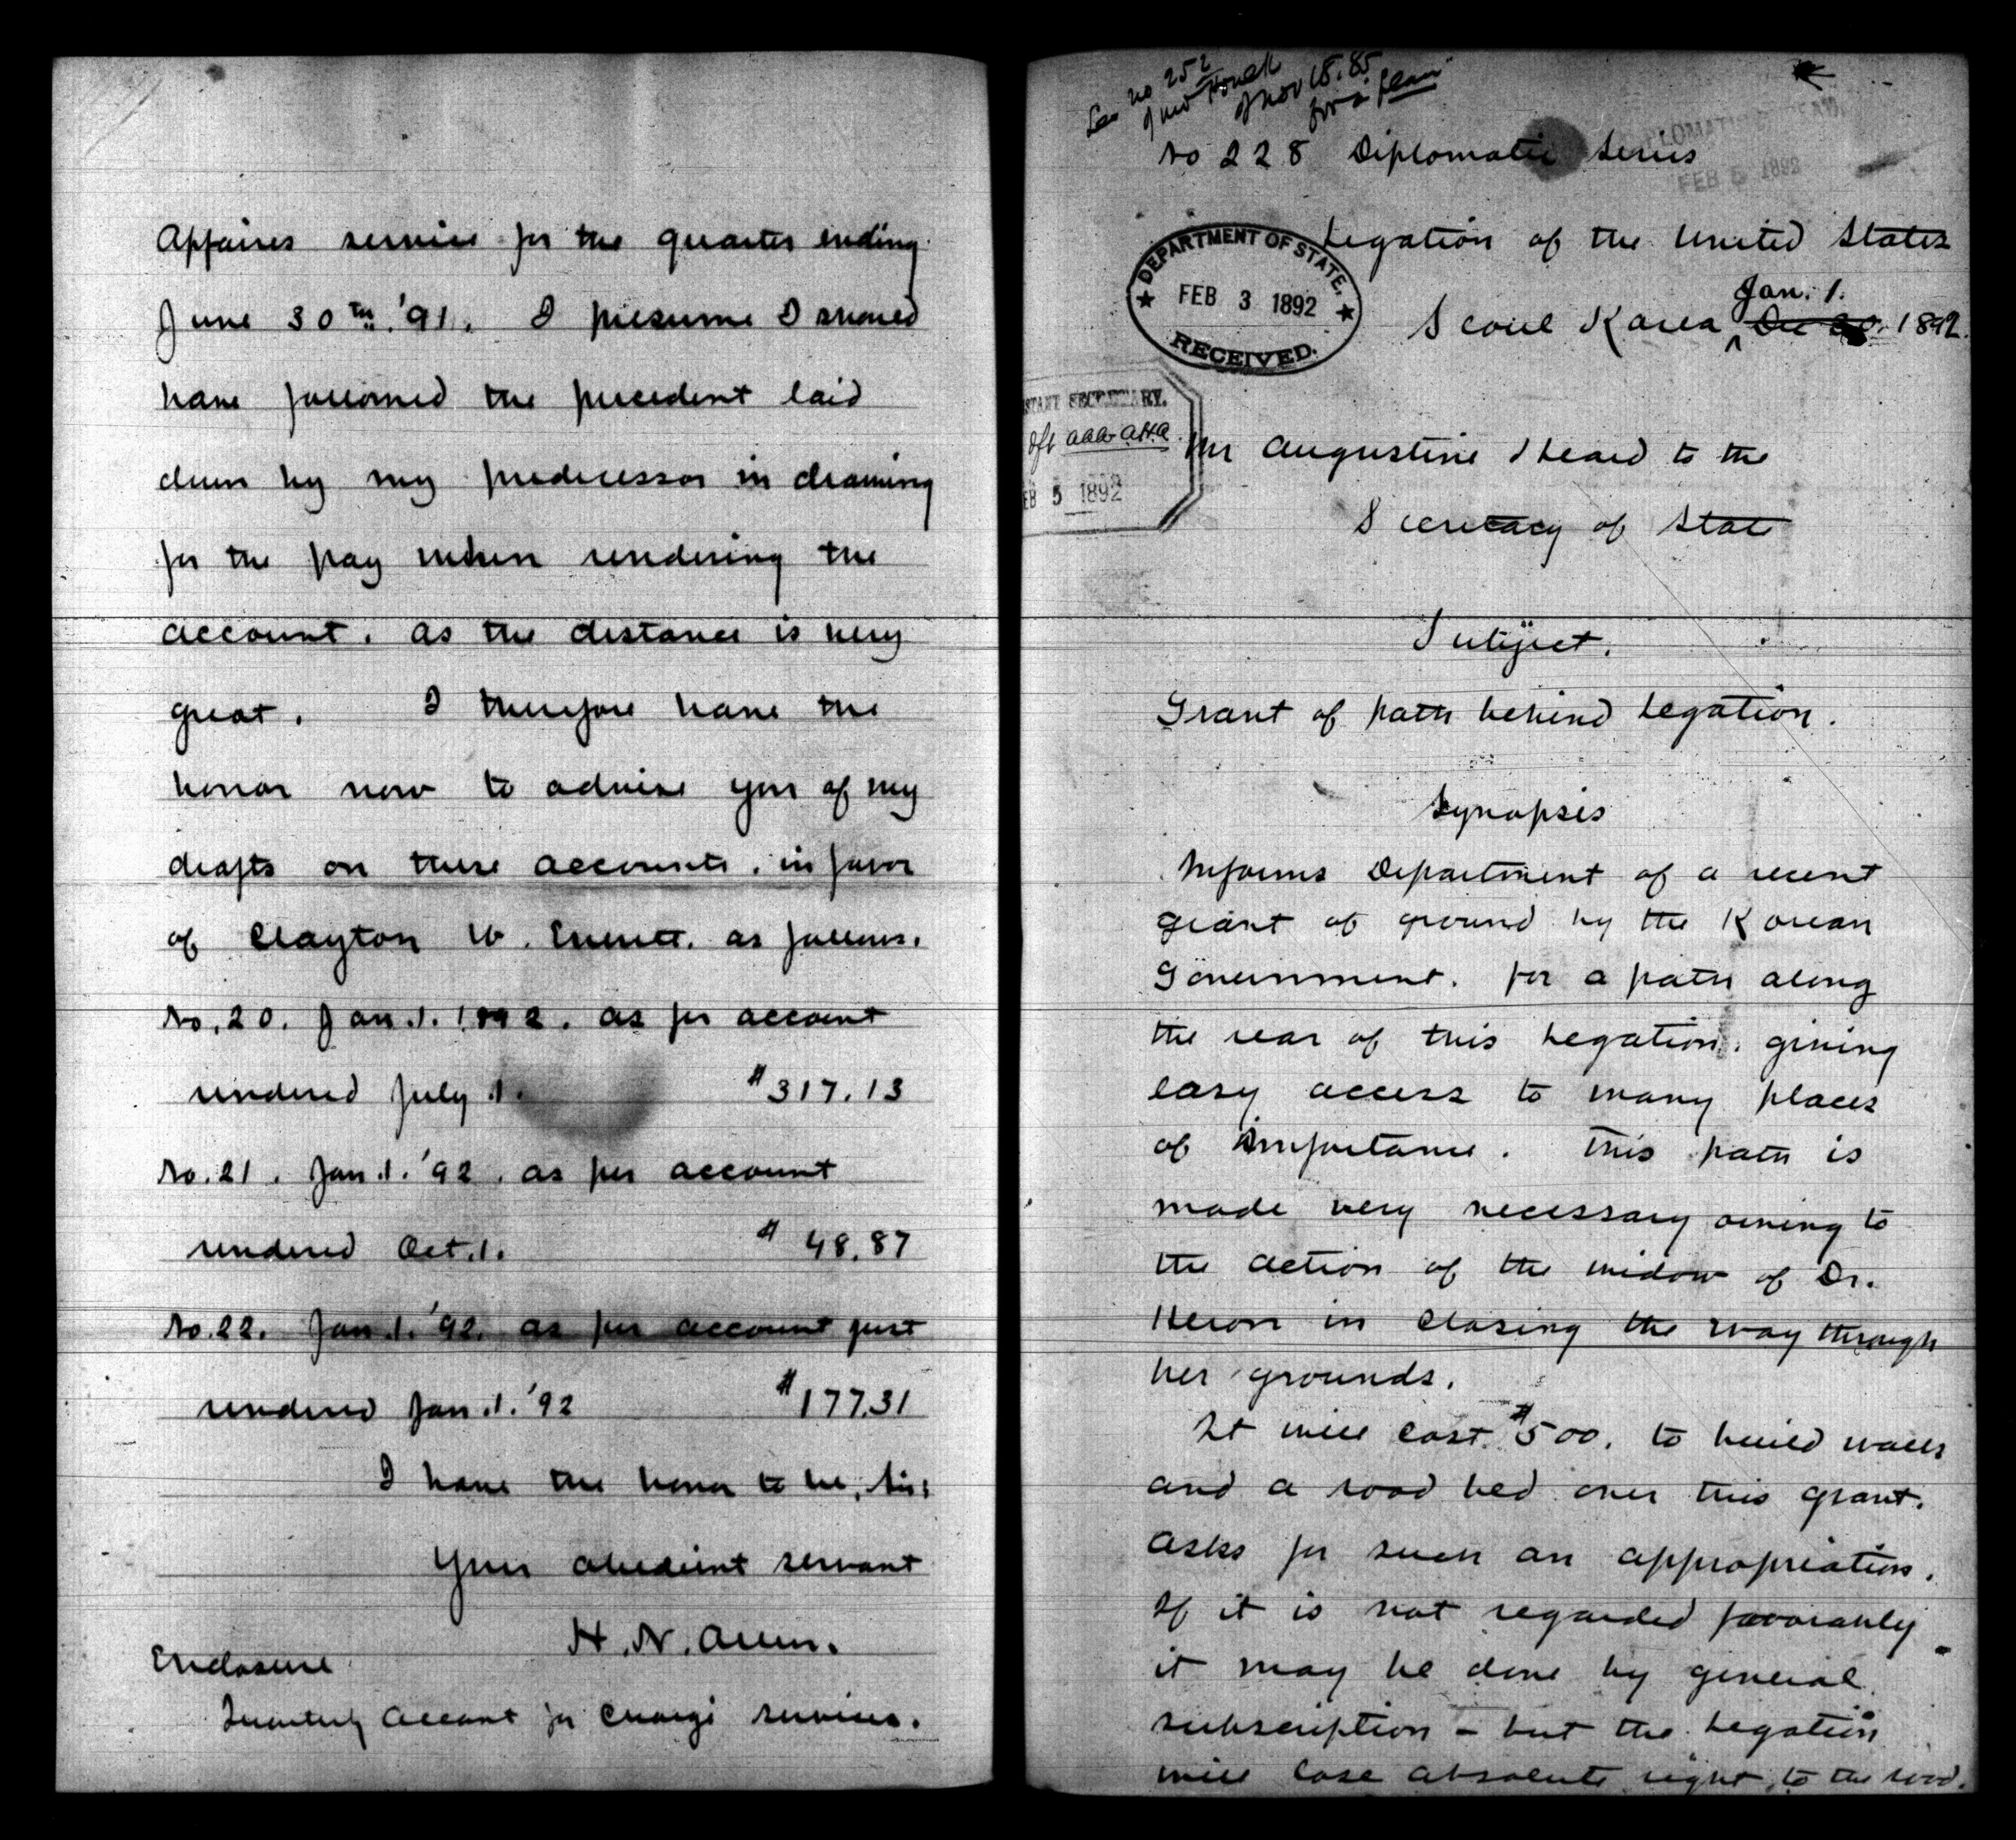 Affaires service for the quarter ending
June 30th '91. I presume I should
have followed the precedent laid
down by my predecessor in drawing
for the pay when rendering the
account. as the distance is very
great. I therefore have the
honor now to advise you of my
drafts on these accounts. in favor
of Clayton W. Everett. as follows.
No. 20. Jan. 1. 1892. as per account
rendered July 1. $317.13
No. 21. Jan. 1. '92. as per account
rendered Oct. 1. $48.87
No. 22. Jan. 1. '92. as per account just
rendered Jan. 1. '92 $177.31
I have the honor to be, Sir:
Your obedient servant
H. N. Allen.
Enclosure
Quarterly Account for Chargé services.
See no 252
of Nov 18. 85
for a plan
No 228 Diplomatic Series
FEB 5 1892
Legation of the United States
DEPARTMENT OF STATE,
FEB 3 1892
RECEIVED.
Jan. 1.
Seoul Korea, Dec 30. 1892.
STANT SECRETARY.
EB 5 1892
Mr Augustine Heard to the
Secretary of State
Subject.
Grant of path behind Legation.
Synopsis
Informs Department of a recent
grant of ground by the Korean
Government. for a path along
the rear of this Legation. giving
easy access to many places
of importance. This path is
made very necessary owing to
the action of the widow of Dr.
Heron in closing the way through
her grounds.
It will cost $500. to build walls
and a road bed over this grant.
Asks for such an appropriation.
If it is not regarded favorably
it may be done by general
subscription - but the Legation
will lose absolute right to the road.